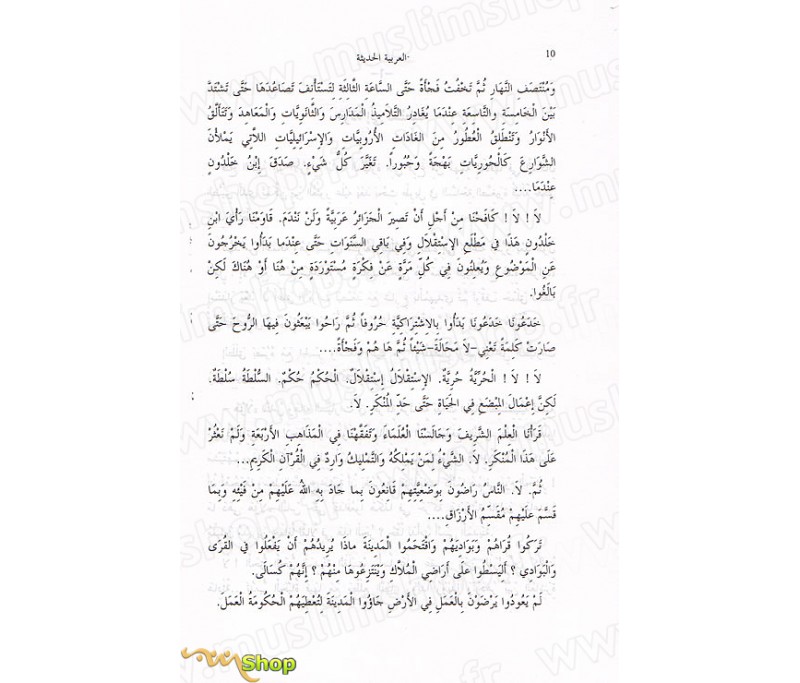 10
العربية الحديثة
وَمُنْتَصَفِ النَّهَارِ ثُمَّ تَخْفُتُ فَجْأَةً حَتَّى السَّاعَةِ الثَّالِثَةِ لِتَسْتَأْنِفَ تَصَاعُدَهَا حَتَّى تَشْتَدَّ
بَيْنَ الْخَامِسَةِ وَالتَّاسِعَةِ عِنْدَمَا يُغَادِرُ التَّلَامِيذُ الْمَدَارِسَ وَالثَّانَوِيَّاتِ وَالْمَعَاهِدَ وَتَتَأَلَّقُ
الْأَنْوَارُ وَتَنْطَلِقُ الْعُطُورُ مِنَ الْغَادَاتِ الْأُرُوبِيَّاتِ وَالْإِسْرَائِيلِيَّاتِ اللاَّتِي يَمْلَأْنَ
الشَّوَارِعَ كَالْحُورِيَّاتِ بَهْجَةً وَحُبُوراً. تَغَيَّرَ كُلُّ شَيْءٍ. صَدَقَ إِبْنُ خَلْدُونٍ
عِنْدَمَا....
لاَ ! لاَ ! كَافَحْنَا مِنْ أَجْلِ أَنْ تَصِيرَ الْجَزَائِرُ عَرَبِيَّةً وَلَنْ نَنْدَمَ. قَاوَمْنَا رَأْيَ ابْنِ
خَلْدُونٍ هَذَا فِي مَطْلَعِ الْإِسْتِقْلاَلِ وَفِي بَاقِي السَّنَوَاتِ حَتَّى عِنْدَمَا بَدَأُوا يَخْرُجُونَ
عَنِ الْمَوْضُوعِ وَيُعْلِنُونَ فِي كُلِّ مَرَّةٍ عَنْ فِكْرَةٍ مُسْتَوْرَدَةٍ مِنْ هُنَا أَوْ هُنَاكَ لَكِنْ
بَالَغُوا.
خَدَعُونَا خَدَعُونَا بَدَأُوا بِالاِشْتِرَاكِيَّةِ حُرُوفاً ثُمَّ رَاحُوا يَبْعَثُونَ فِيهَا الرُّوحَ حَتَّى
صَارَتْ كَلِمَةً تَعْنِي-لاَ مَحَالَةَ-شَيْئاً ثُمَّ هَا هُمْ وَفَجْأَةً....
لاَ ! لاَ ! الْحُرِّيَّةُ حُرِيَّةٌ. الإِسْتِقْلاَلُ إِسْتِقْلاَلٌ. الْحُكْمُ حُكْمٌ. السُّلْطَةُ سُلْطَةٌ.
لَكِنَّ إِعْمَالَ الْمِبْضَعِ فِي الْحَيَاةِ حَتَّى حَدِّ الْمُنْكَرِ. لاَ.
قَرَأْنَا الْعِلْمَ الشَّرِيفَ وَجَالَسْنَا الْعُلَمَاءَ وَتَفَقَّهْنَا فِي الْمَذَاهِبِ الْأَرْبَعَةِ وَلَمْ نَعْثُرْ
عَلَى هَذَا الْمُنْكَرِ. لاَ. الشَّيْءُ لِمَنْ يَمْلِكُهُ وَالتَّمْلِيكُ وَارِدٌ فِي الْقُرْآنِ الْكَرِيمِ...
ثُمَّ. لاَ. النَّاسُ رَاضُونَ بِوَضْعِيَّتِهِمْ قَانِعُونَ بِما جَادَ بِهِ اللهُ عَلَيْهِمْ مِنْ فَيْئِهِ وَبِمَا
قَسَّمَ عَلَيْهِمْ مُقَسِّمُ الْأَرْزَاقِ....
تَرَكُوا قُرَاهُمْ وَبَوَادِيَهُمْ وَاقْتَحَمُوا الْمَدِينَةَ مَاذَا يُرِيدُهُمْ أَنْ يَفْعَلُوا فِي الْقُرَى
وَالْبَوَادِي ؟ أَلِيَسْطُوا عَلَى أَرَاضِي الْمُلاَّكِ وَيَنْتَزِعُوهَا مِنْهُمْ ؟ إِنَّهُمْ كُسَالَى.
لَمْ يَعُودُوا يَرْضَوْنَ بِالْعَمَلِ فِي الْأَرْضِ جَاؤُوا الْمَدِينَةَ لِتُعْطِيَهُمْ الْحُكُومَةُ الْعَمَلَ.
Shop
www.muslimshop.fr